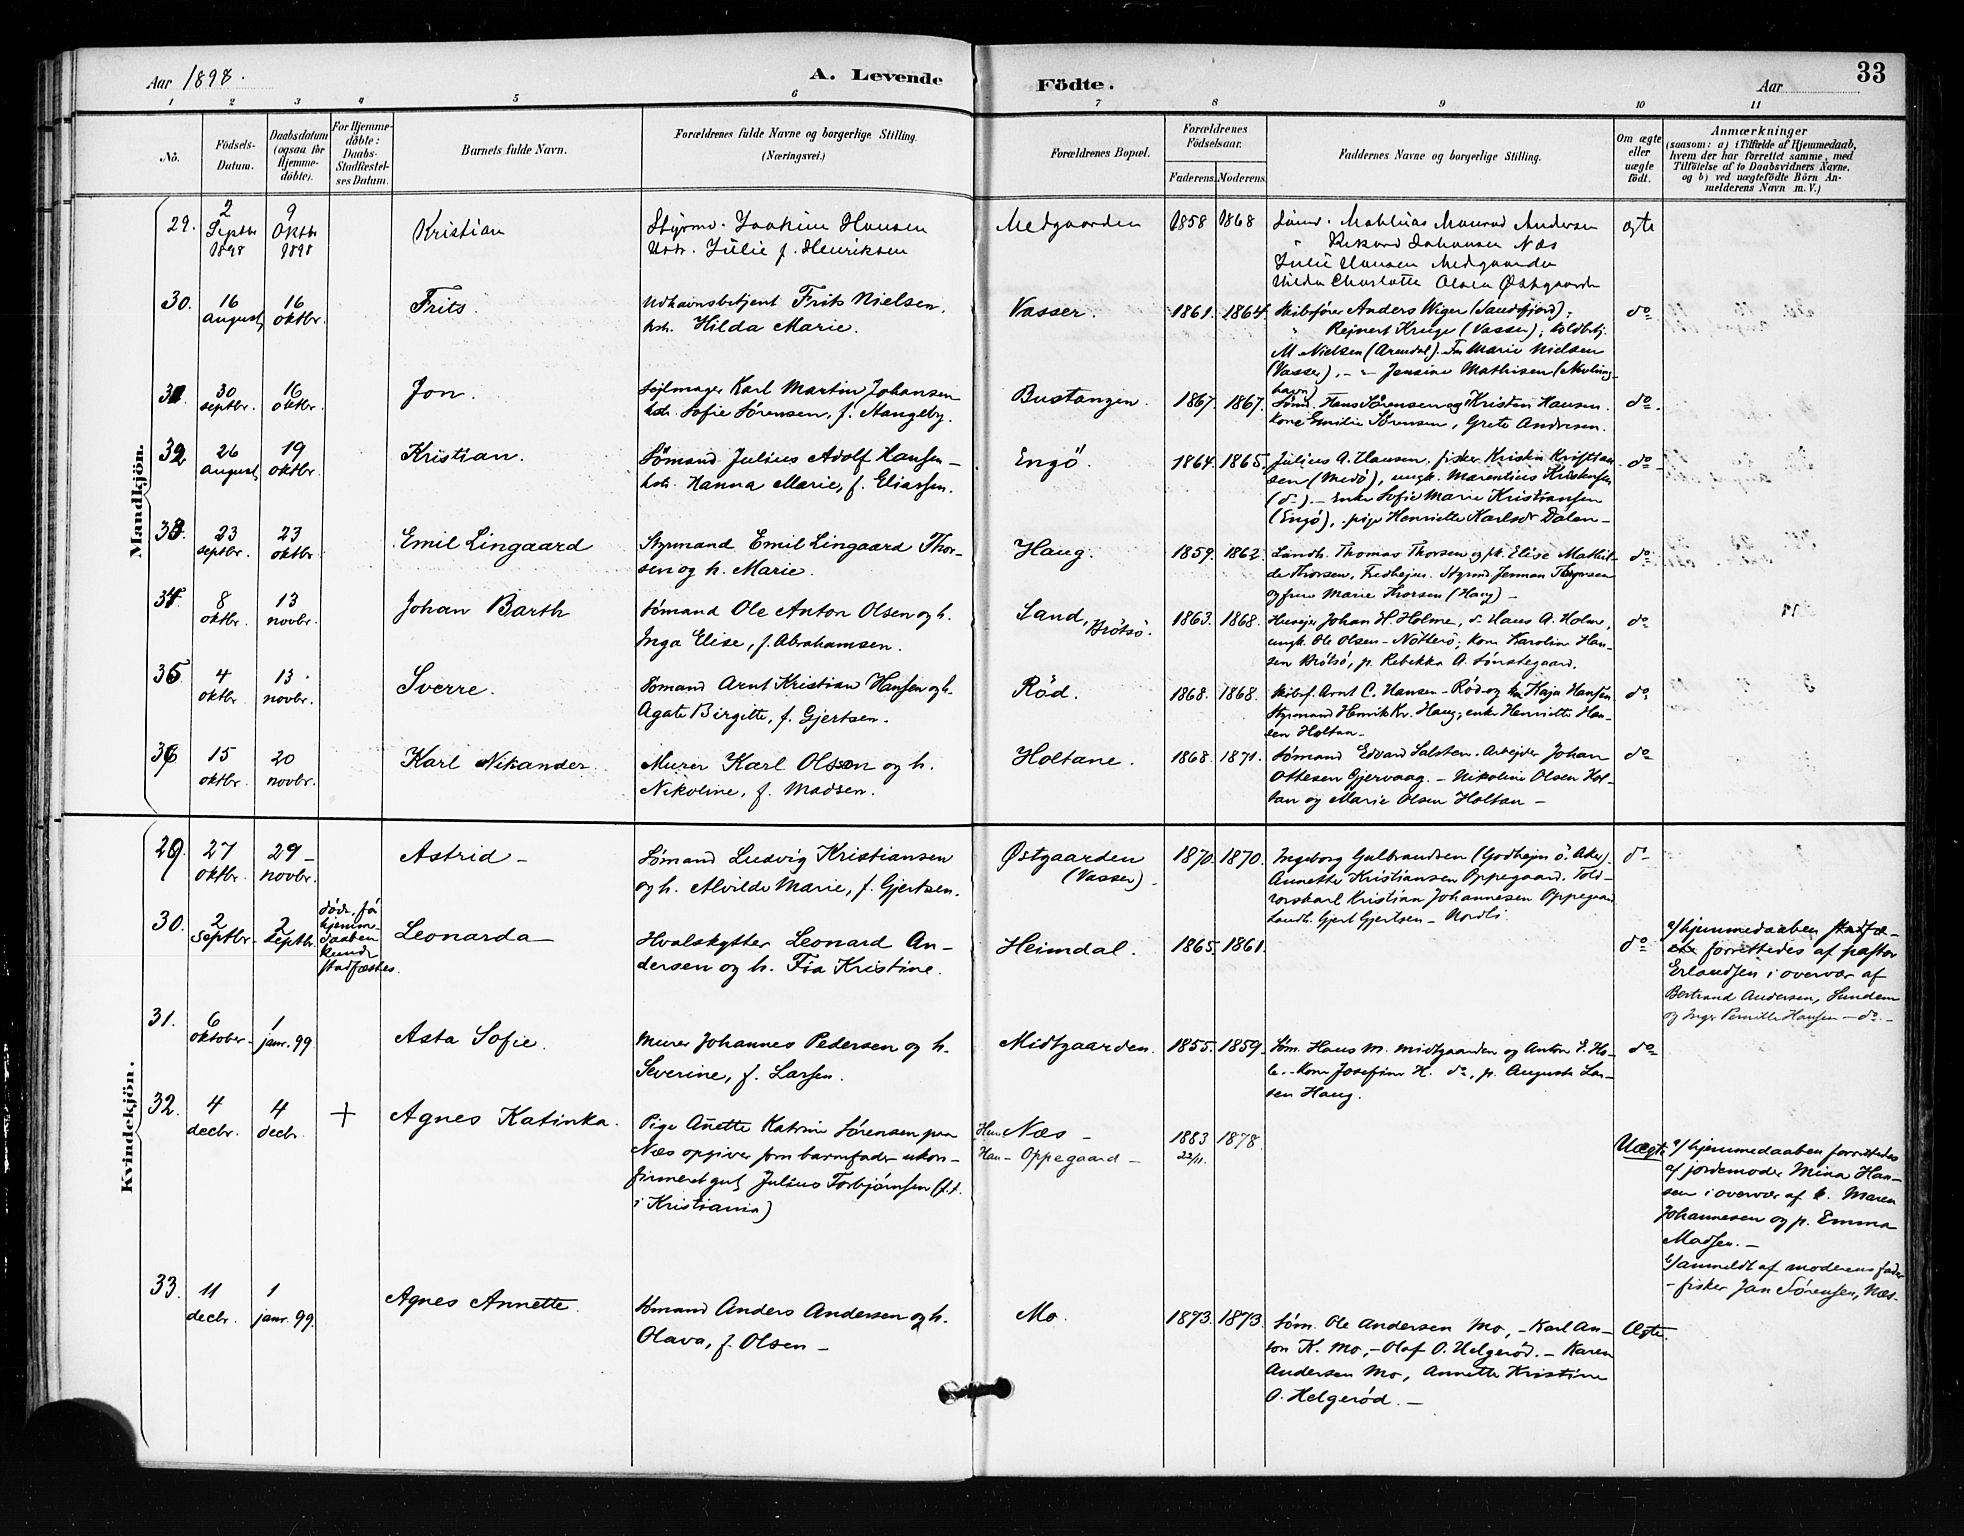 Aar 1898.
A. Levende
Födte.
Aar
33
1 2 3 4 5 6 7 8 9 10 11
No.
Födsels-
Datum.
Daabsdatum
(ogsaa for
Hjemme-
döbte).
For Hjemme-
döbte:
Daabs-
Stadfæstel-
ses Datum.
Barnets fulde Navn.
Forældrenes fulde Navne og borgerlige Stilling.
(Næringsvei.)
Forældrenes Bopæl.
Forældrenes
Födselsaar.
Faderens. Moderens.
Faddernes Navne og borgerlige Stilling.
Om ægte
eller
uægte
födt.
Anmærkninger
(saasom: a) i Tilfælde af Hjemmedaab,
hvem der har forrettet samme, med
Tilföielse af to Daabsvidners Navne,
og b) ved uægtefödte Börn An-
melderens Navn m. V.)
Mandkjön.
29.
2
Septbr
1898
9
Oktbr
1898
Kristian
Styrm. Joakim Hansen
Hstr. Julie f. Henriksen
Medgaarden
1858 1868
Sømd. Mathias Monrad Andersen
" Rikard Johansen Næs
Julie Hansen Medgaarden
Hilda Charlotte Olsen Østgaarden
ægte
30.
16
august
16
oktbr.
Frits.
Udhavnsbetjent Frits Nielsen,
hstr. Hilda Marie.
Vasser.
1861. 1864.
Skibsfører Anders Wiger (Sandefjord);
" Rejnert Kruge (Vasser); toldbetj.
M. Nielsen (Arendal). Fru Marie Nielsen
(Vasser), – " – Jensine Mathisen
havn)
do
31.
30
septbr.
16
oktbr.
Jon.
Sejlmager Karl Martin Johansen
hstr. Sofie Sørensen, f. Stangeby.
Bustangen.
1867. 1867.
Sømd. Hans Sørensen og Kristen Hansen.
Kone Emilie Sørensen, Grete Andresen.
do.
32
26
august
19
oktbr.
Kristian.
Sømand Julius Adolf Hansen –
hstr. Hanna Marie, f. Eliassen.
Engö.
1864. 1865.
Julius A. Hansen, fisker Kristen Kristian-
sen (Medö), ungk. Marentius Kristensen
(do). – Enke Sofie Marie Kristiansen
(Engö), pige Henriette Karlsdr Dalen –
do
33.
23
septbr.
23
oktbr.
Emil Lingaard
Styrmand Emil Lingaard Thor-
sen og h. Marie.
Haug.
1859. 1862.
Landh. Thomas Thorsen og pt. Elise Mathil-
de Thorsen, Fredhejm. Styrmd Herman Thorsen
og fru Marie Thorsen (Haug) –
do
34.
8
oktbr.
13
novbr.
Johan Barth
Sømand Ole Anton Olsen og h.
Inga Elise, f. Abrahamsen.
Sand, Brøtsö.
1863. 1868.
Husejer Johan H Holme, do Hans A. Holme,
ungk. Ole Olsen – Nötterö; kone Karoline Han-
sen Brøtsö, p. Rebekka A. Sønstegaard.
do
35
4
oktbr.
13
novbr.
Sverre.
Sømand Arnt Kristian Hansen og h.
Agate Birgitte, f. Gjertsen.
Rød.
1868. 1868.
Skibsf. Arnt C. Hansen – Rød og fru Kaja Hansen
Styrmand Henrik Kr. Haug; enke Henriette Han-
sen Holtan –
do
36
15
oktbr.
20
novbr.
Karl Nikander
Murer Karl Olsson og h.
Nikoline, f. Madsen.
Holtane.
1868. 1871.
Sømand Edvard Salsten. Arbejder Johan
Ottesen Gjervaag. – Nikoline Olsen Hol-
tan og Marie Olsen Holtan –
do
Kvindekjön.
29.
27
oktbr.
29
novbr.
Astrid –
Sømand Ludvig Kristiansen
og h. Alvilde Marie, f. Gjertsen.
Østgaarden
(Vasser) –
1870. 1870.
Ingeborg Gulbrandsen (Godhejm ö. Aker).
Annette Kristiansen Oppegaard. Told-
rorskarl Kristian Johannesen Oppegaard
Landh. Gjert Gjertsen – Nordli.
do
30.
2
septbr.
2
septbr.
døde, før
hjemme-
daaben
kunde
stadfæstes.
Leonarda
Hvalskytter Leonard An-
dersen og h. Fia Kristine.
Heimdal.
1865. 1861.
do
a/ hjemmedaaben stadfæ-
stes forrettedes af pastor
Erlandsen i overvær af
Bertrand Andersen, Sundene
og Inger Pernille Hansen – do –
31.
6
oktober –
1
janr. 99.
Asta Sofie.
Murer Johannes Pedersen og h.
Severine, f. Larsen.
Midtgaarden.
1855. 1859.
Søm. Hans M. Midtgaarden og Anton E. Ho-
le. – Kone Josefine H. do, p. Augusta Lar-
sen Haug.
do
32.
4
decbr.
4
decbr.
+
Agnes Katinka.
Pige Anette Katrine Sørensen paa
Næs opgiver som barnefader ukon-
firmeret gut Julius Torbjørnsen (f.t.
i Kristiania)
Hun Næs –
Han – Oppegaard –
1883
22/11.
1878.
Uægte
a/ hjemmedaaben forrettedes
af jordemoder Mina Han-
sen i overvær af k. Maren
Johannesen og p. Emma
Madsen. –
b/ anmeldt af moderens fader
– fisker Jan Sørensen, Næs –
33.
11
decbr.
1
janr. 99.
Agnes Annette.
Sømand Anders Andersen og h.
Olava, f. Olsen –
Mo.
1873. 1873.
Søm. Ole Andersen Mo, – Karl An-
ton K. Mo, – Olaf O. Helgerød. – Karen
Andersen Mo, Annette Kristine
O. Helgerød. –
Ægte.